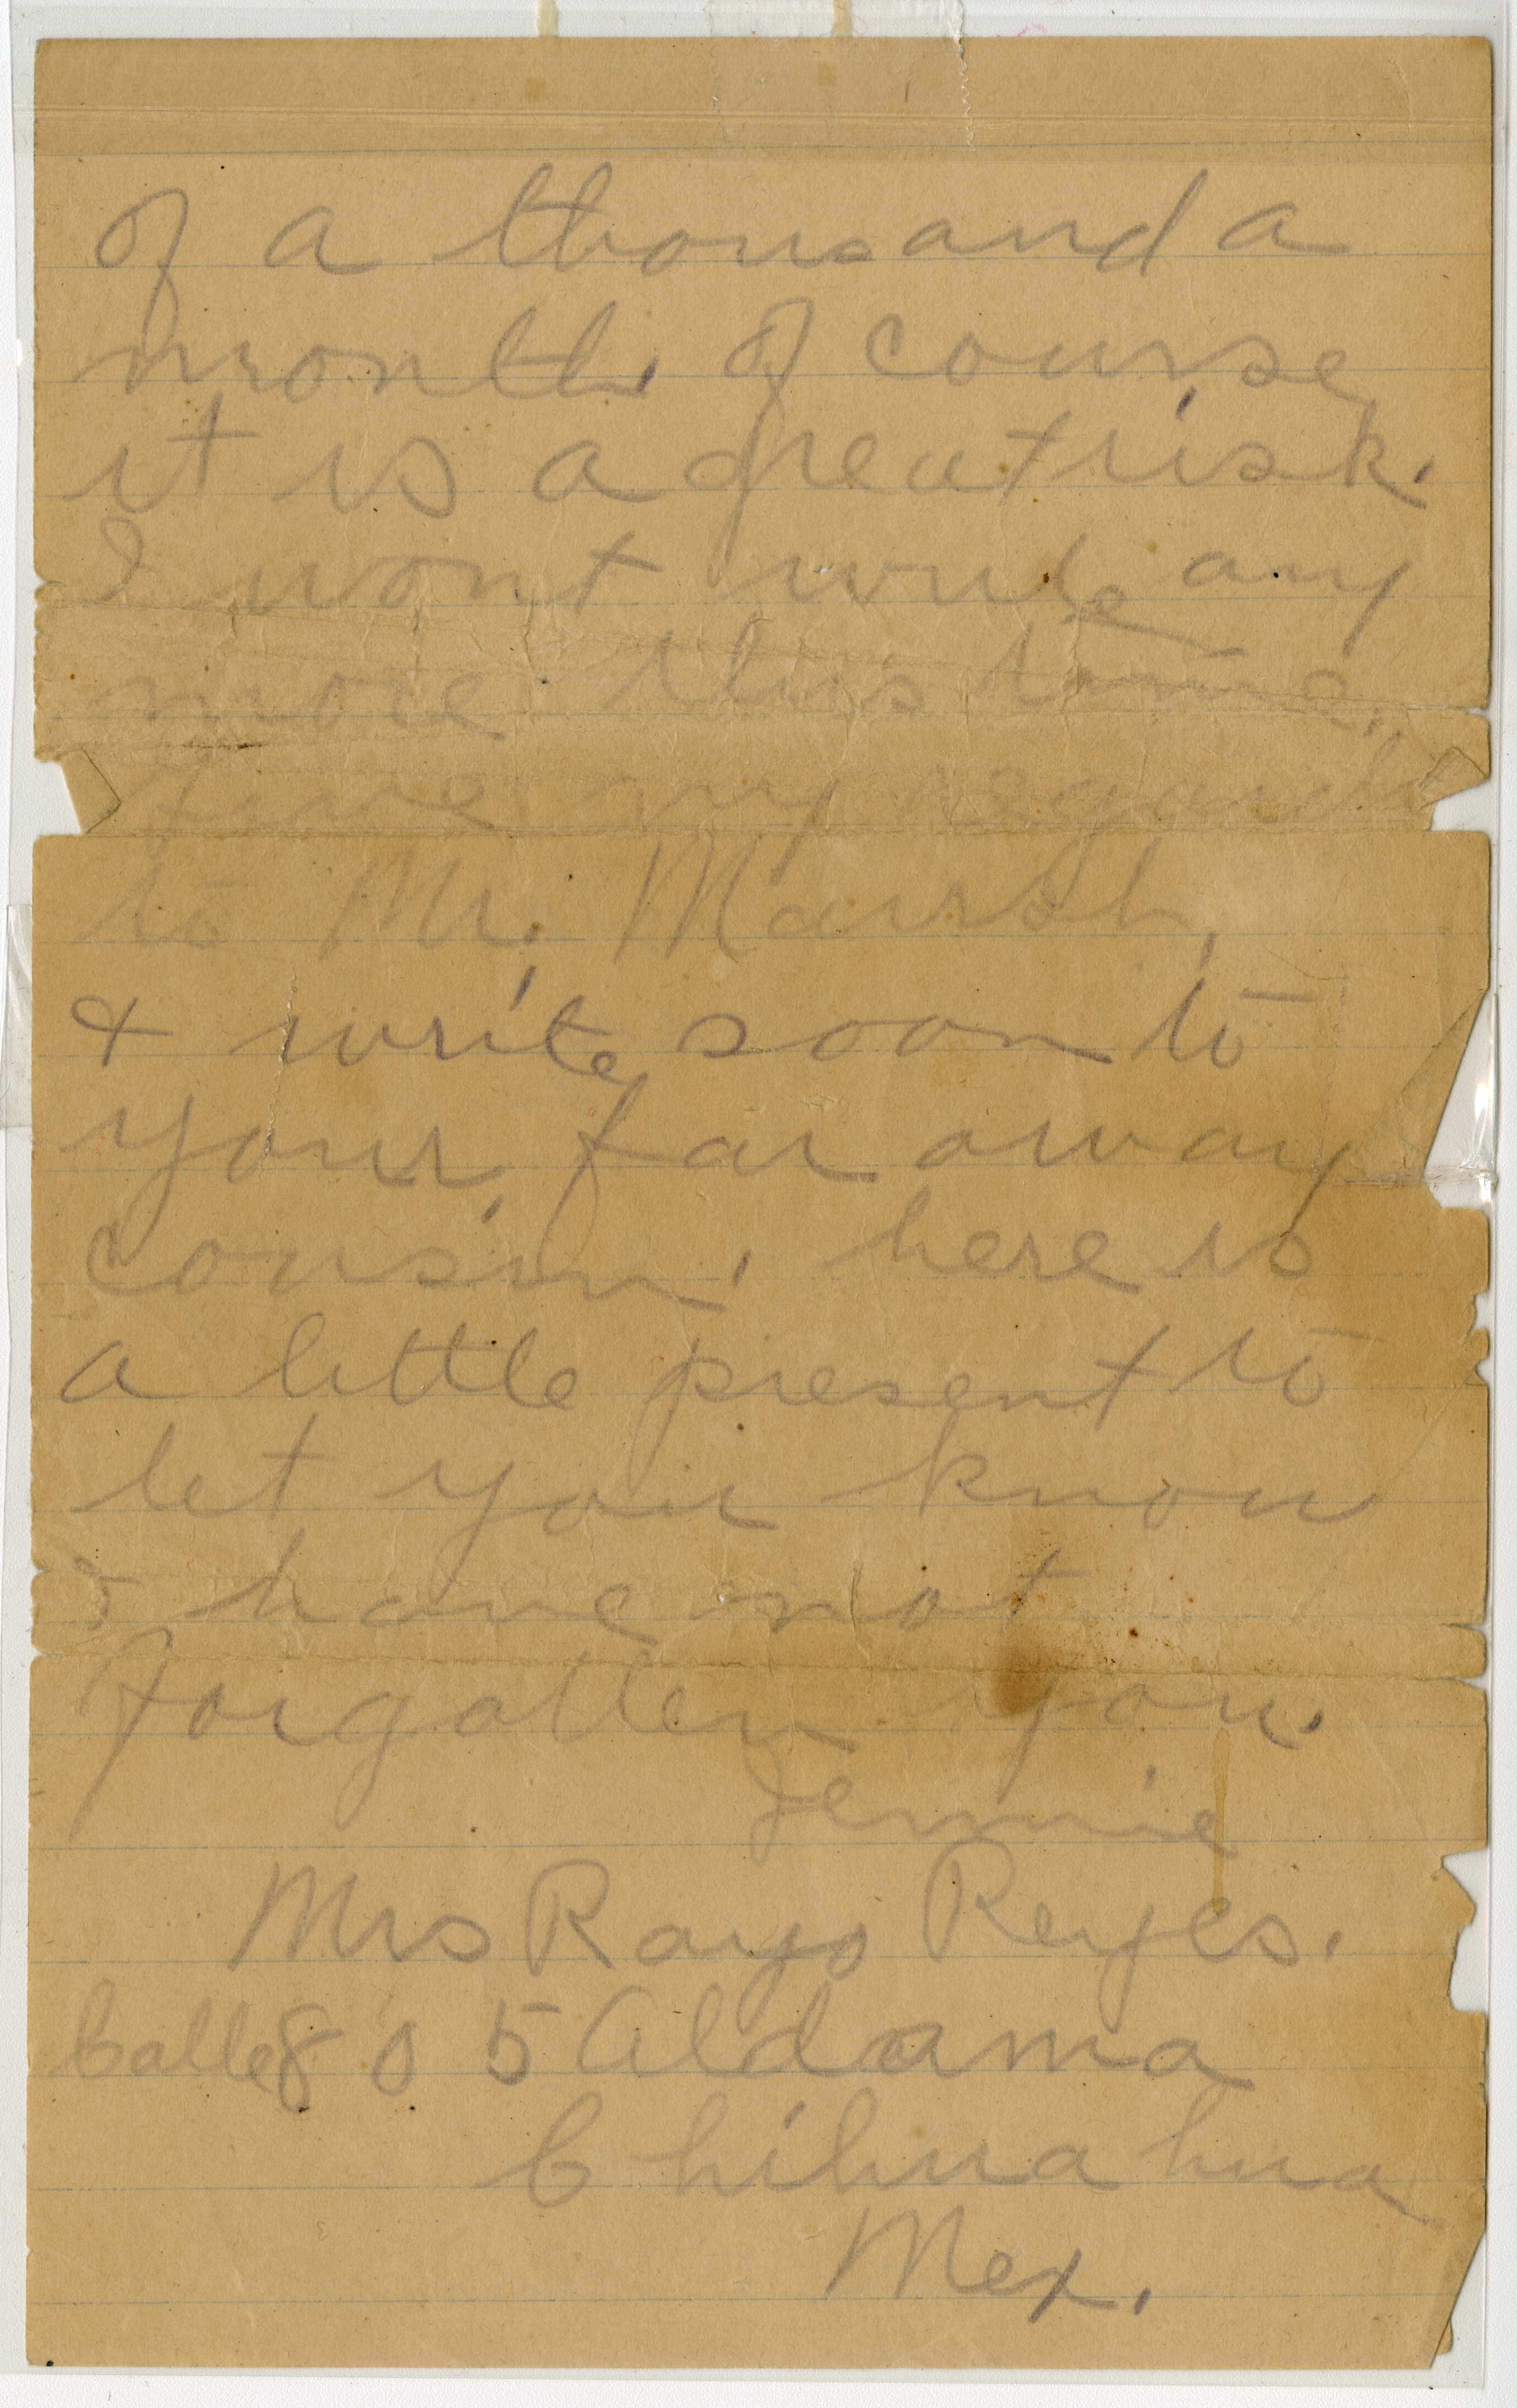 of a thousand a
month. of course
it is a great risk.
I wont write any
more this time.
Give my regards
to Mr. Marsh,
& write soon to
your far away
cousin. here is
a little present to
let you know
I have not
forgotten you.
Jennie
Mrs Rayo Reyes.
Calle 805 Aldama
Chihuahua
Mex.